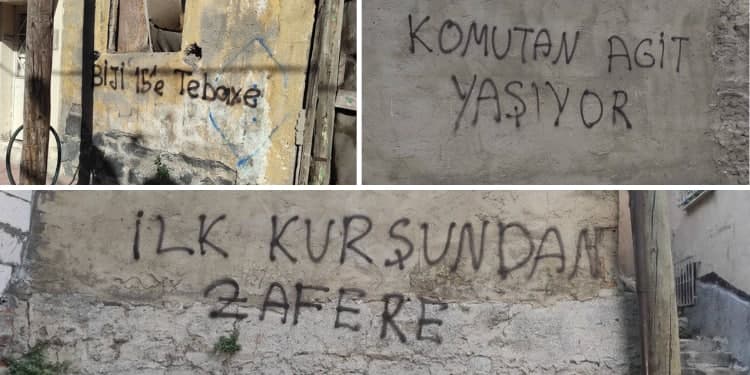 BİJİ 15'e Tebaxe
KOMUTAN AGİT
YAŞIYOR
İLK KURŞUNDAN
ZAFERE